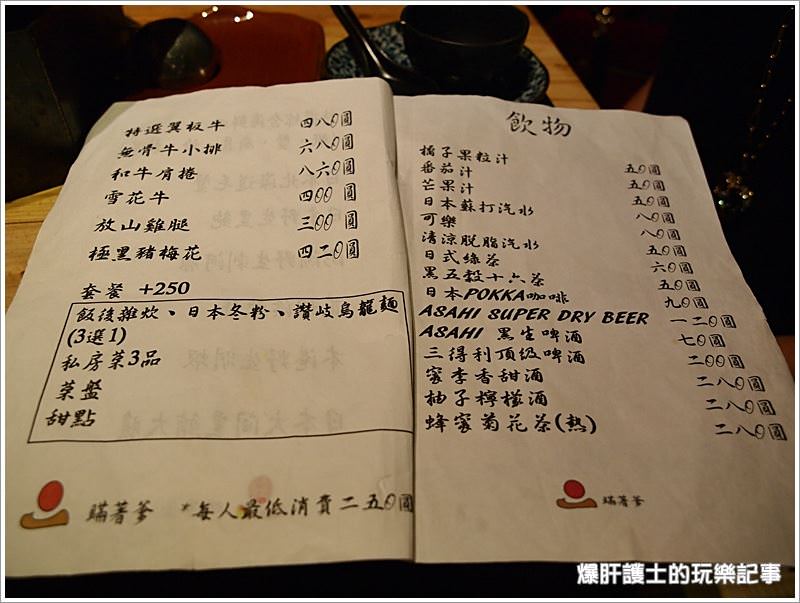 特選翼板牛 四八0圓
無骨牛小排 六八0圓
和牛肩捲 八六0圓
雪花牛 四00圓
放山雞腿 三00圓
極黑豬梅花 四二0圓
套餐 +250
飯後雜炊、日本冬粉、讚岐烏龍麵
(3選1)
私房菜3品
菜盤
甜點
瞞著爹 *每人最低消費二五0圓
飲物
橘子果粒汁 五0圓
番茄汁 五0圓
芒果汁 五0圓
日本蘇打汽水 八0圓
可樂 八0圓
清涼脫脂汽水 五0圓
日式綠茶 六0圓
黑五穀十六茶 五0圓
日本POKKA咖啡 九0圓
ASAHI SUPER DRY BEER 一二0圓
ASAHI 黑生啤酒 七0圓
三得利頂級啤酒 二00圓
蜜李香甜酒 二八0圓
柚子檸檬酒 二八0圓
蜂蜜菊花茶(熱) 二八0圓
瞞著爹
爆肝護士的玩樂記事